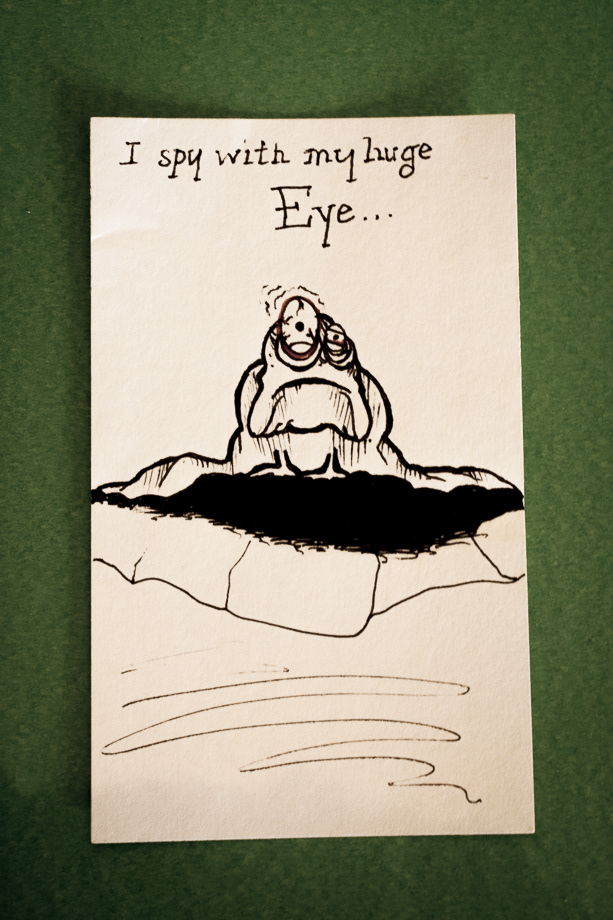 I spy with my huge
Eye...